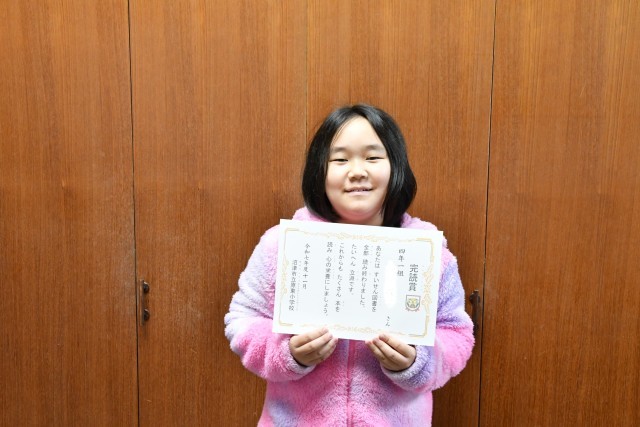 完読賞
四年一組
さん
あなたは すいせん図書を
全部 読み終わりました。
たいへん 立派です。
これからも たくさん 本を
読み 心の栄養にしましょう。
令和七年度 十一月
沼津市立原東小学校